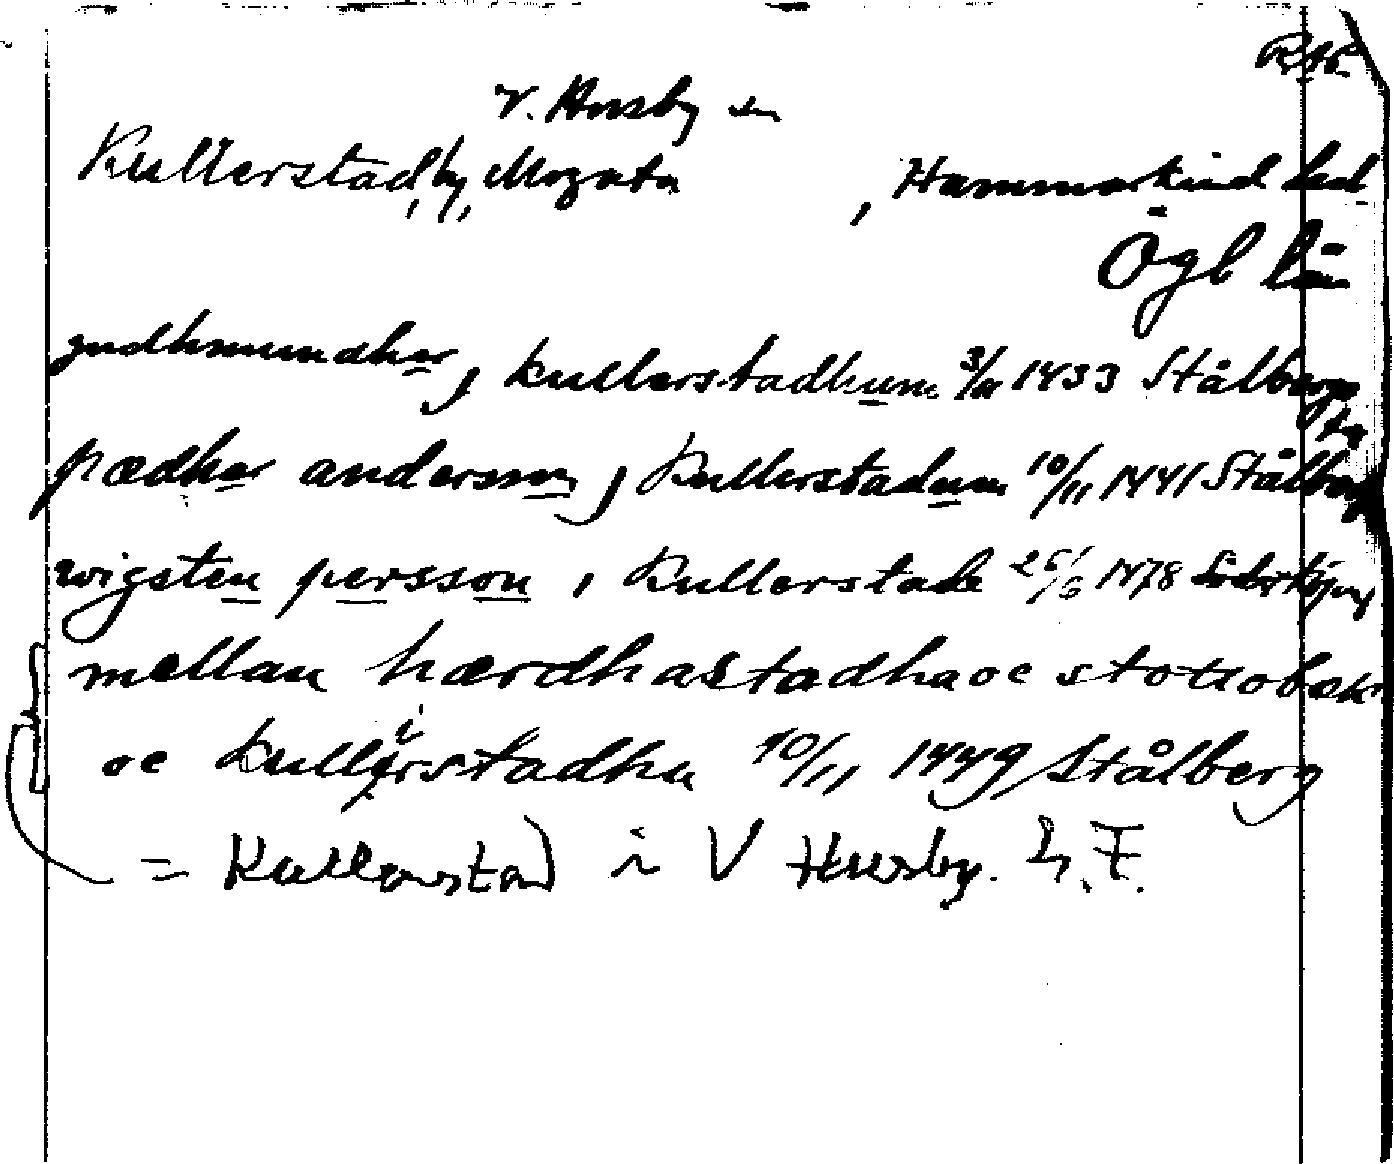 V. Husby sn
Kullerstad, by, Mogata, Hammarkind hd
Ögl län
gudhmunder, kullerstadhum 3/11 1433 Stålberg
pædher anderson, Kullerstadum 10/11 1441 Stålberg
wigsten persson, Kullerstade 26/6 1478 Söderköping
mellan hærdhastadha oc stottobæk
oc kullirstadha 10/11 1449 Stålberg
= Kullerstad i V Husby.